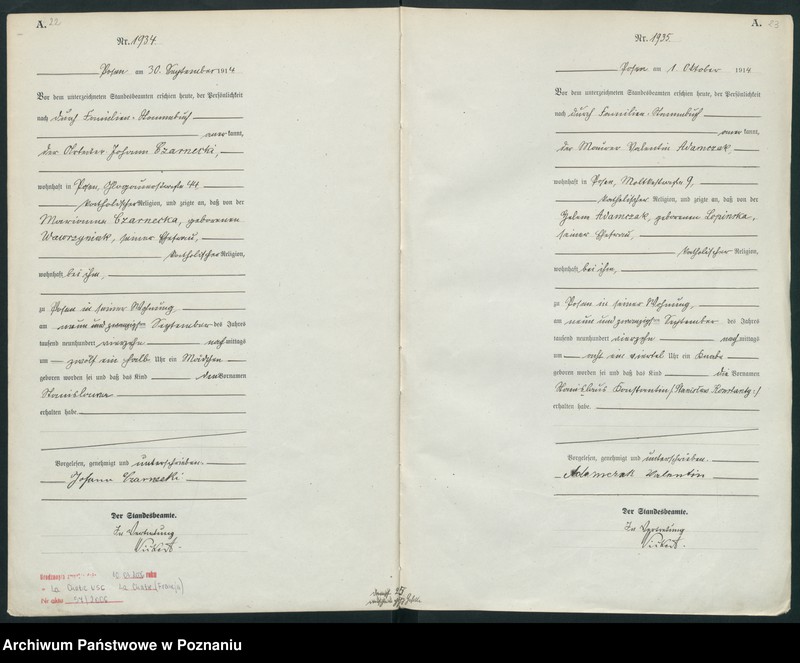 A. 22
Nr. 1934.
Posen am 30. September 1914
Vor dem unterzeichneten Standesbeamten erschien heute, der Persönlichkeit
nach durch Familien-Stammbuch
anerkannt,
der Arbeiter Johann Czarnecki,
wohnhaft in Posen, Glogauerstraße 44
katholischer Religion, und zeigte an, daß von der
Marianna Czarnecka, geborenen
Wawrzyniak, seiner Ehefrau,
katholischer Religion,
wohnhaft bei ihm,
zu Posen in seiner Wohnung
am neun und zwanzigsten September des Jahres
tausend neunhundert vierzehn nachmittags
um zwölf ein halb Uhr ein Mädchen
geboren worden sei und daß das Kind den Vornamen
Stanislawa
erhalten habe.
Vorgelesen, genehmigt und unterschrieben.
Johann Czarnecki
Der Standesbeamte.
In Vertretung
A. 23
Nr. 1935.
Posen am 1. Oktober 1914
Vor dem unterzeichneten Standesbeamten erschien heute, der Persönlichkeit
nach durch Familien-Stammbuch
anerkannt,
der Maurer Valentin Adamczak,
wohnhaft in Posen, Moltkestraße 9,
katholischer Religion, und zeigte an, daß von der
Helene Adamczak, geborenen Lopinska,
seiner Ehefrau,
katholischer Religion,
wohnhaft bei ihm,
zu Posen in seiner Wohnung,
am neun und zwanzigsten September des Jahres
tausend neunhundert vierzehn nachmittags
um acht ein viertel Uhr ein Knabe
geboren worden sei und daß das Kind die Vornamen
Stanislaus Konstantin /Stanisław Konstanty:/
erhalten habe.
Vorgelesen, genehmigt und unterschrieben.
Adamczak Valentin
Der Standesbeamte.
In Vertretung
roku
USC
Nr aktu
Archiwum Państwowe w Poznaniu